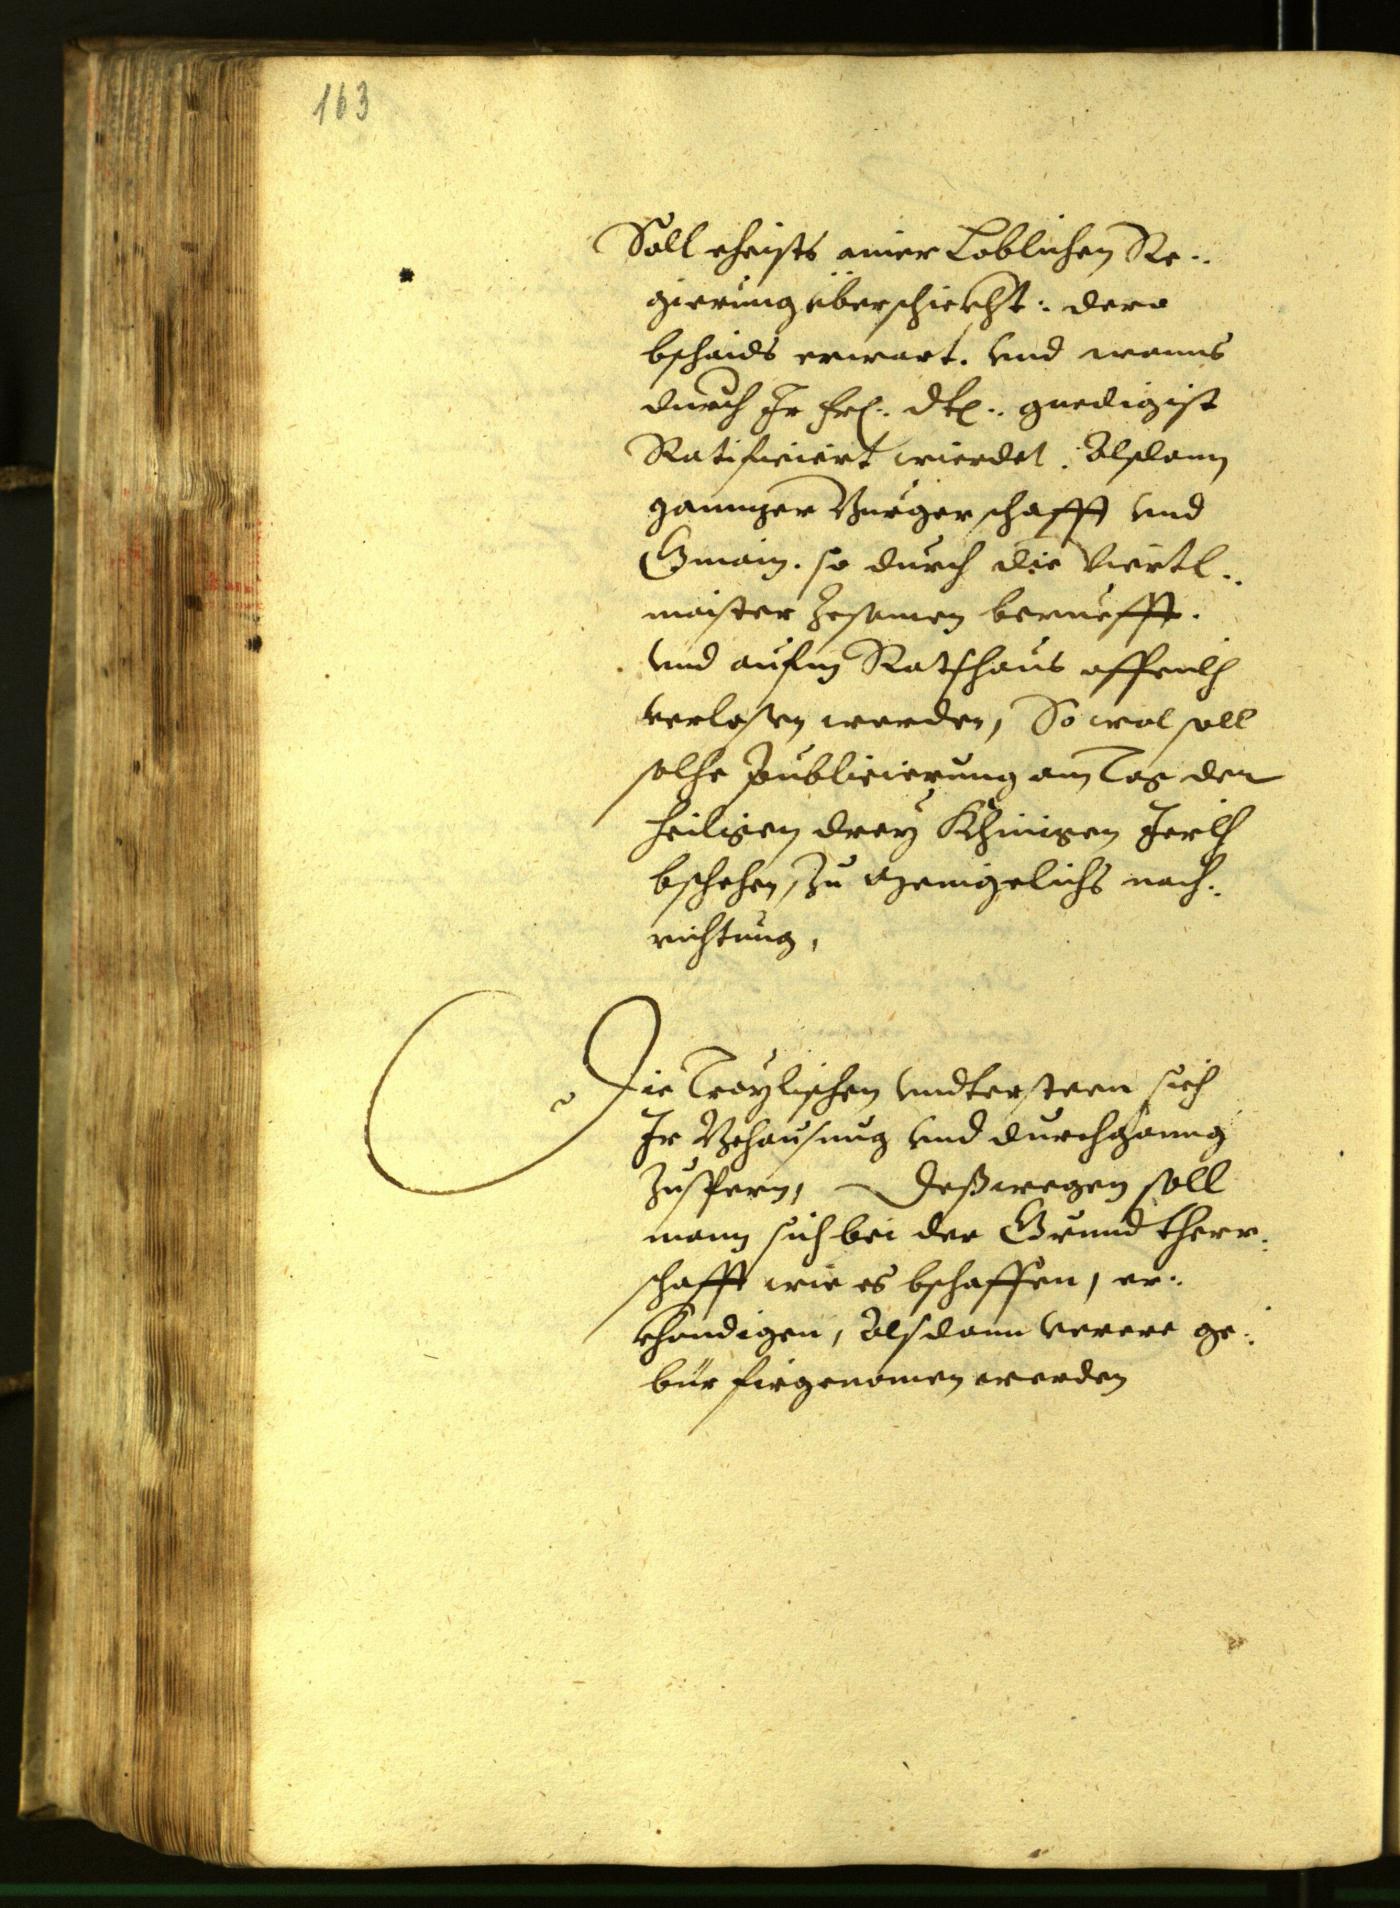 163
Soll eheists ainer Loblichen Re¬
gierung überschickht: dero
bschaids erwart. vnd wanns
durch Ir frl: dt: gnedigist
Ratificiert wierdet. Alsdann
gannzer Burgerschafft vnd
Gmain. so durch die Viertl¬
maister zesamen beruefft.
vnd aufm Rathhaus offenlich
verlesen werden, So wol soll
solhe Publicierung am Tag der
heiligen drey Khinigen Jerlich
bschehen, zu menigelichs nach¬
richtung,
Die Troylischen vndtersteen sich
Ir Behausung vnd durchganng
zuspern, Deßwegen soll
mann sich bei der Grundtherr¬
schafft wie es bschaffen, er¬
khondigen, Alsdann verere ge¬
bür firgenomen werden